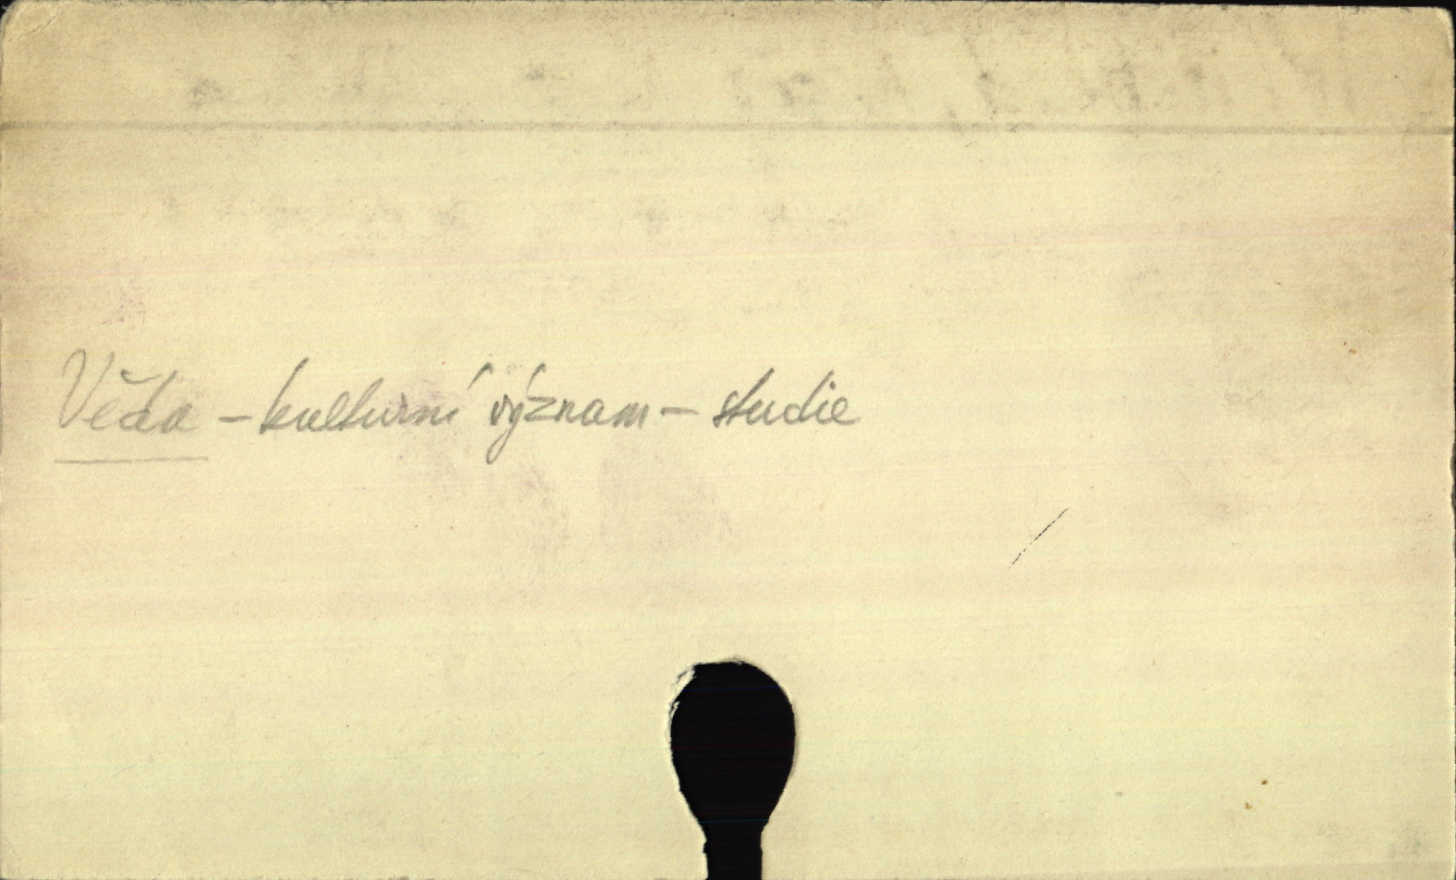 Věda - kulturní význam - studie